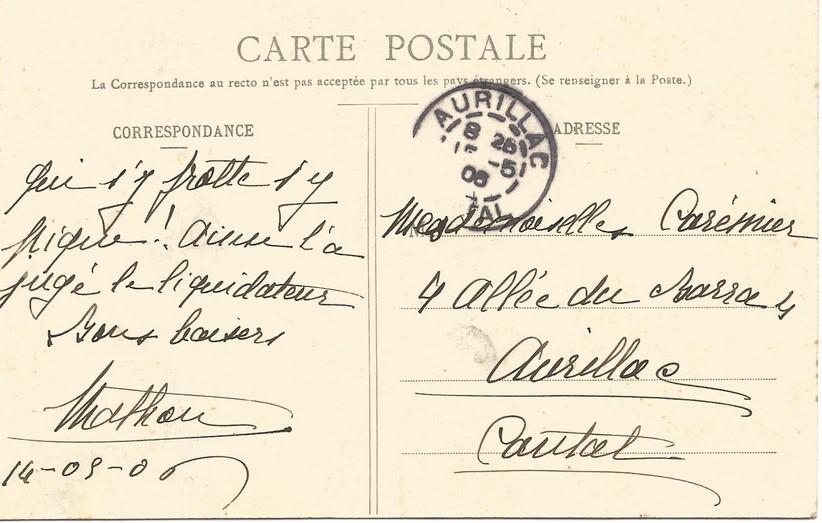 CARTE POSTALE
La Correspondance au recto n'est pas acceptée par tous les pays étrangers. (Se renseigner à la Poste.)
CORRESPONDANCE
qui s'y frotte s'y
pique! Ainsi l'a
jugé le liquidateur
Bons baisers
Mathou
14-05-06
ADRESSE
AURILLAC
8
25
-5
06
Mesdemoiselles
4 Allée du Barra
Aurillac
Cantal